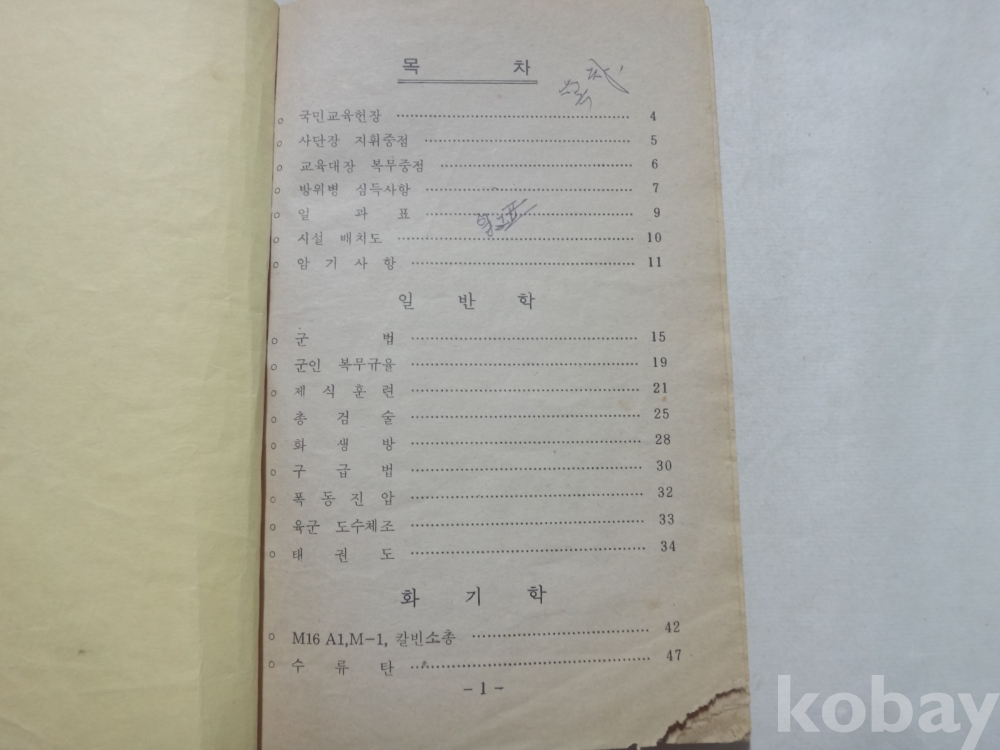 목 차
국민교육헌장 4
사단장 지휘중점 5
교육대장 복무중점 6
방위병 심득사항 7
일 과 표 9
시설 배치도 10
암 기 사 항 11
일 반 학
군 법 15
군인 복무규율 19
제 식 훈 련 21
총 검 술 25
화 생 방 28
구 급 법 30
폭 동 진 압 32
육군 도수체조 33
태 권 도 34
화 기 학
M16 A1,M-1, 칼빈소총 42
수 류 탄 47
- 1 -
kobay